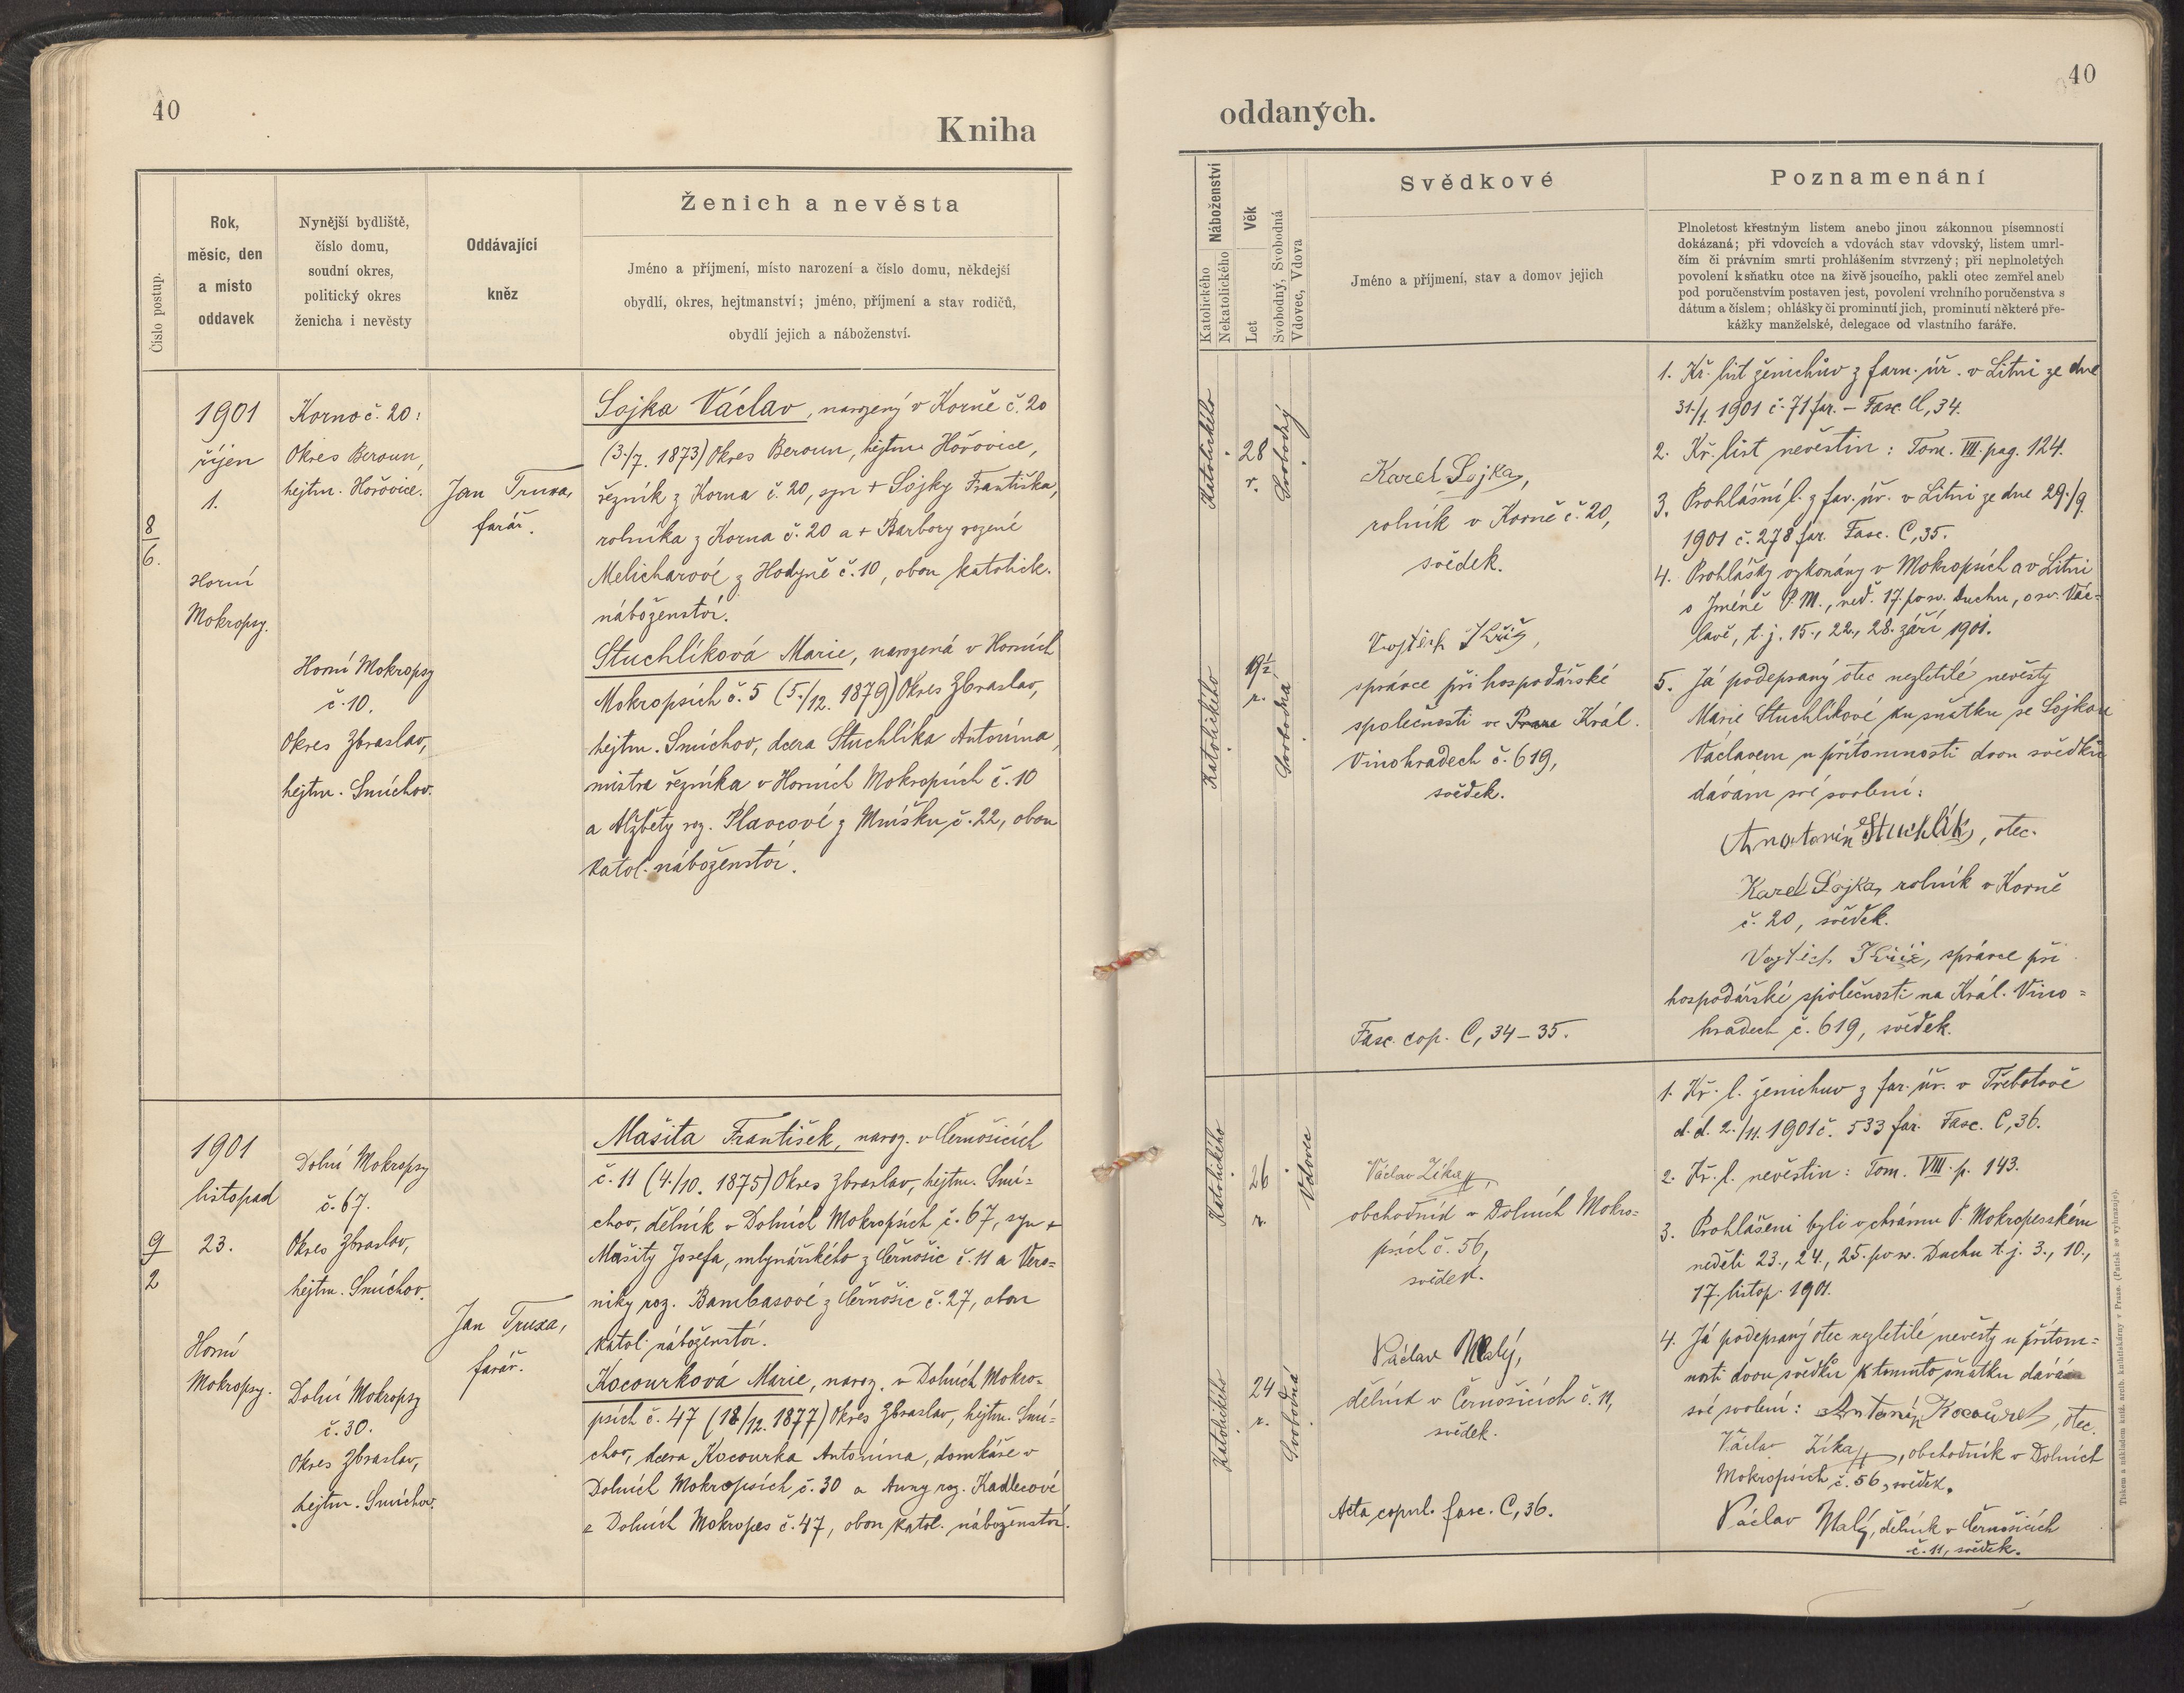 40
Kniha
Číslo postup.
Rok,
měsíc, den
a místo
oddavek
Nynější bydliště,
číslo domu,
soudní okres,
politický okres
ženicha i nevěsty
Oddávající
kněz
Ženich a nevěsta
Jméno a příjmení, místo narození a číslo domu, někdejší
obydlí, okres, hejtmanství; jméno, příjmení a stav rodičů,
obydlí jejich a náboženství.
8
6.
1901
říjen
1.
Horní
Mokropsy.
Korno č. 20:
Okres Beroun,
hejtm. Hořovice.
Horní Mokropsy
č. 10.
Okres Zbraslav,
hejtm. Smíchov.
Jan Truxa,
farář.
Sojka Václav, narozený v Korně č. 20
(3./7. 1873) Okres Beroun, hejtm. Hořovice,
řezník z Korna č. 20, syn + Sojky Františka,
rolníka z Korna č. 20 a + Barbory rozené
Melicharové z Hodyně č. 10, obou katolick.
náboženství.
Stuchlíková Marie, narozená v Horních
Mokropsích č. 5 (5./12. 1879) Okres Zbraslav,
hejtm. Smíchov, dcera Stuchlíka Antonína,
mistra řezníka v Horních Mokropsích č. 10
a Alžběty roz. Plavcové z Mníšku č. 22, obou
katol. náboženství.
9
2
1901
listopad
23.
Horní
Mokropsy.
Dolní Mokropsy
č. 67.
Okres Zbraslav,
hejtm. Smíchov.
Dolní Mokropsy
č. 30.
Okres Zbraslav,
hejtm. Smíchov.
Jan Truxa,
farář.
Mašita František, naroz. v Černošicích
č. 11 (4./10. 1875) Okres Zbraslav, hejtm. Smí-
chov, dělník v Dolních Mokropsích č. 67, syn +
Mašity Josefa, mlynářského z Černošic č. 11 a Vero-
niky roz. Bambasové z Černošic č. 27, obou
katol. náboženství.
Kocourková Marie, naroz. v Dolních Mokro-
psích č. 47 (18/12. 1877) Okres Zbraslav, hejtm. Smí-
chov, dcera Kocourka Antonína, domkáře v
Dolních Mokropsích č. 30 a Anny roz. Kadlecové
z Dolních Mokropes č. 47, obou katol. náboženství.
40
oddaných.
Náboženství
Katolického
Nekatolického
Věk
Let
Svobodný, Svobodná
Vdovec, Vdova
Svědkové
Jméno a příjmení, stav a domov jejich
Poznamenání
Plnoletost křestným listem anebo jinou zákonnou písemností
dokázaná; při vdovcích a vdovách stav vdovský, listem úmrt-
čím či právním smrti prohlášením stvrzený; při neplnoletých
povolení k sňatku otce na živě jsoucího, pakli otec zemřel aneb
pod poručenstvím postaven jest, povolení vrchního poručenstva s
dátum a číslem; ohlášky či prominutí jich, prominutí některé pře-
kážky manželské, delegace od vlastního faráře.
Katolického
28
r.
Svobodný
Katolického
19½
r.
Svobodná
Karel Sojka,
rolník v Korně č. 20,
svědek.
Vojtěch Kříž,
správce při hospodářské
společnosti ve Praze Král.
Vinohradech č. 619,
svědek.
Fasc. cop. C, 34–35.
1. Kř. list ženichův z farn. úř. v Litni ze dne
31./1. 1901 č. 71 far. – Fasc. C, 34.
2. Kř. list nevěstin: Tom. VIII. pag. 124.
3. Prohlášní l. z far. úř. v Litni ze dne 29./9.
1901 č. 278 far. Fasc. C, 35.
4. Prohlášky vykonány v Mokropsích a v Litni
o Jméně P. M., ned. 17. po sv. Duchu, o sv. Vác-
lavě, t. j. 15., 22., 28. září 1901.
5. Já podepsaný otec nezletilé nevěsty
Marie Stuchlíkové ku sňatku se Sojkou
Václavem u přítomnosti dvou svědků
dávám své svolení:
Anatonín Stuchlík, otec.
Karel Sojka, rolník v Korně
č. 20, svědek.
Vojtěch Kříž, správce při
hospodářské společnosti na Král. Vino-
hradech č. 619, svědek.
Katolického
26
r.
Vdovec
Katolického
24
r.
Svobodná
Václav Zíka,
obchodník v Dolních Mokro-
psích č. 56,
svědek.
Václav Malý,
dělník v Černošicích č. 11,
svědek.
Acta copul. fasc. C, 36.
1. Kř. l. ženichův z far. úř. v Třebotově
d. d. 2./11. 1901 č. 533 far. Fasc. C, 36.
2. Kř. l. nevěstin: Tom. VIII. p. 143.
3. Prohlášeni byli v chrámu P. Mokropesském
neděli 23., 24., 25. po sv. Duchu t. j. 3., 10.,
17. listop. 1901.
4. Já podepsaný otec nezletilé nevěsty u přítom-
nosti dvou svědků k tomuto sňatku dávám
své svolení: Antonín Kocourek, otec.
Václav Zíka, obchodník v Dolních
Mokropsích č. 56, svědek.
Václav Malý, dělník v Černošicích
č. 11, svědek.